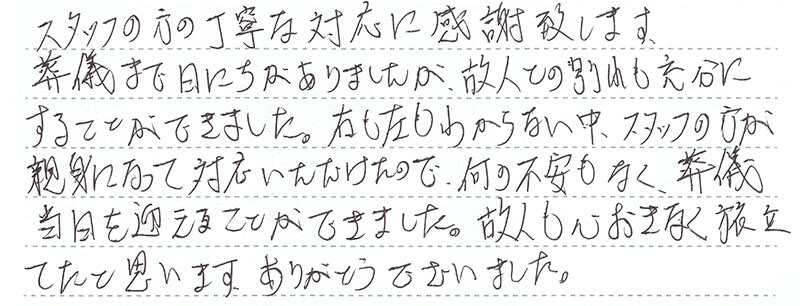 スタッフの方の丁寧な対応に感謝致します。
葬儀まで日にちがありましたが、故人との別れも充分に
することができました。右も左もわからない中、スタッフの方が
親身になって対応いただけたので、何の不安もなく、葬儀
当日を迎えることができました。故人も心おきなく旅立
てたと思います。ありがとうございました。